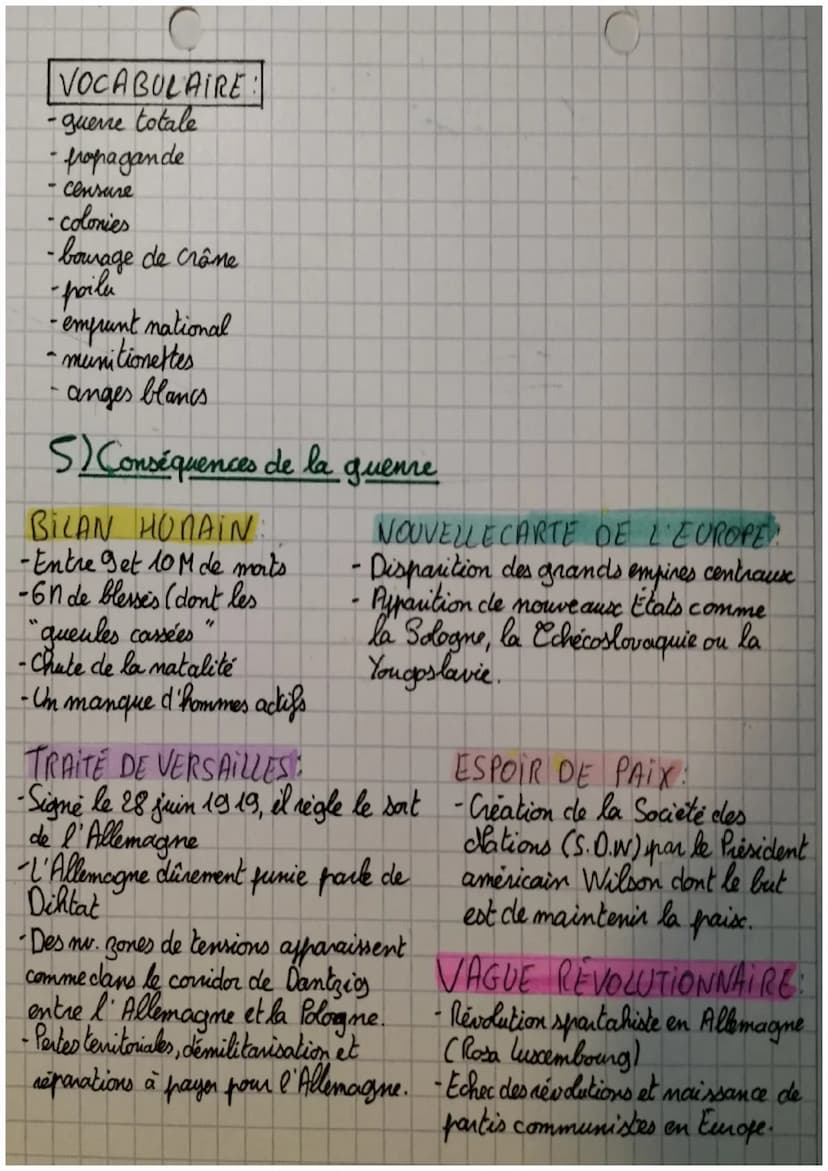 VOCABULAIRE:
- guerre totale
- propagande
- censure
- colonies
- bourage de crâne
- poilu
- emprunt national
- munitionettes
- anges blancs
5) Conséquences de la guerre
BILAN HUMAIN:
- Entre 9 et 10 M de morts
- 6M de blessés (dont les
"gueules cassées"
- Chute de la natalité
- Un manque d'hommes actifs
NOUVELLE CARTE DE L'EUROPE:
- Disparition des grands empires centraux
- Apparition de nouveaux États comme
la Sologne, la Tchécoslovaquie ou la
Yougoslavie.
TRAITÉ DE VERSAILLES:
- Signé le 28 juin 1919, il règle le sort
de l'Allemagne
- L'Allemagne dûrement punie parle de
Diktat
- Des nv. zones de tensions apparaissent
comme dans le corridor de Dantzig
entre l'Allemagne et la Pologne.
- Pertes territoriales, démilitarisation et
réparations à payer pour l'Allemagne.
ESPOIR DE PAIX:
- Création de la Société des
Nations (S.D.N) par le Président
américain Wilson dont le but
est de maintenir la paix.
VAGUE RÉVOLUTIONNAIRE:
- Révolution spartakiste en Allemagne
(Rosa Luxembourg)
- Echec des révolutions et naissance de
partis communistes en Europe.